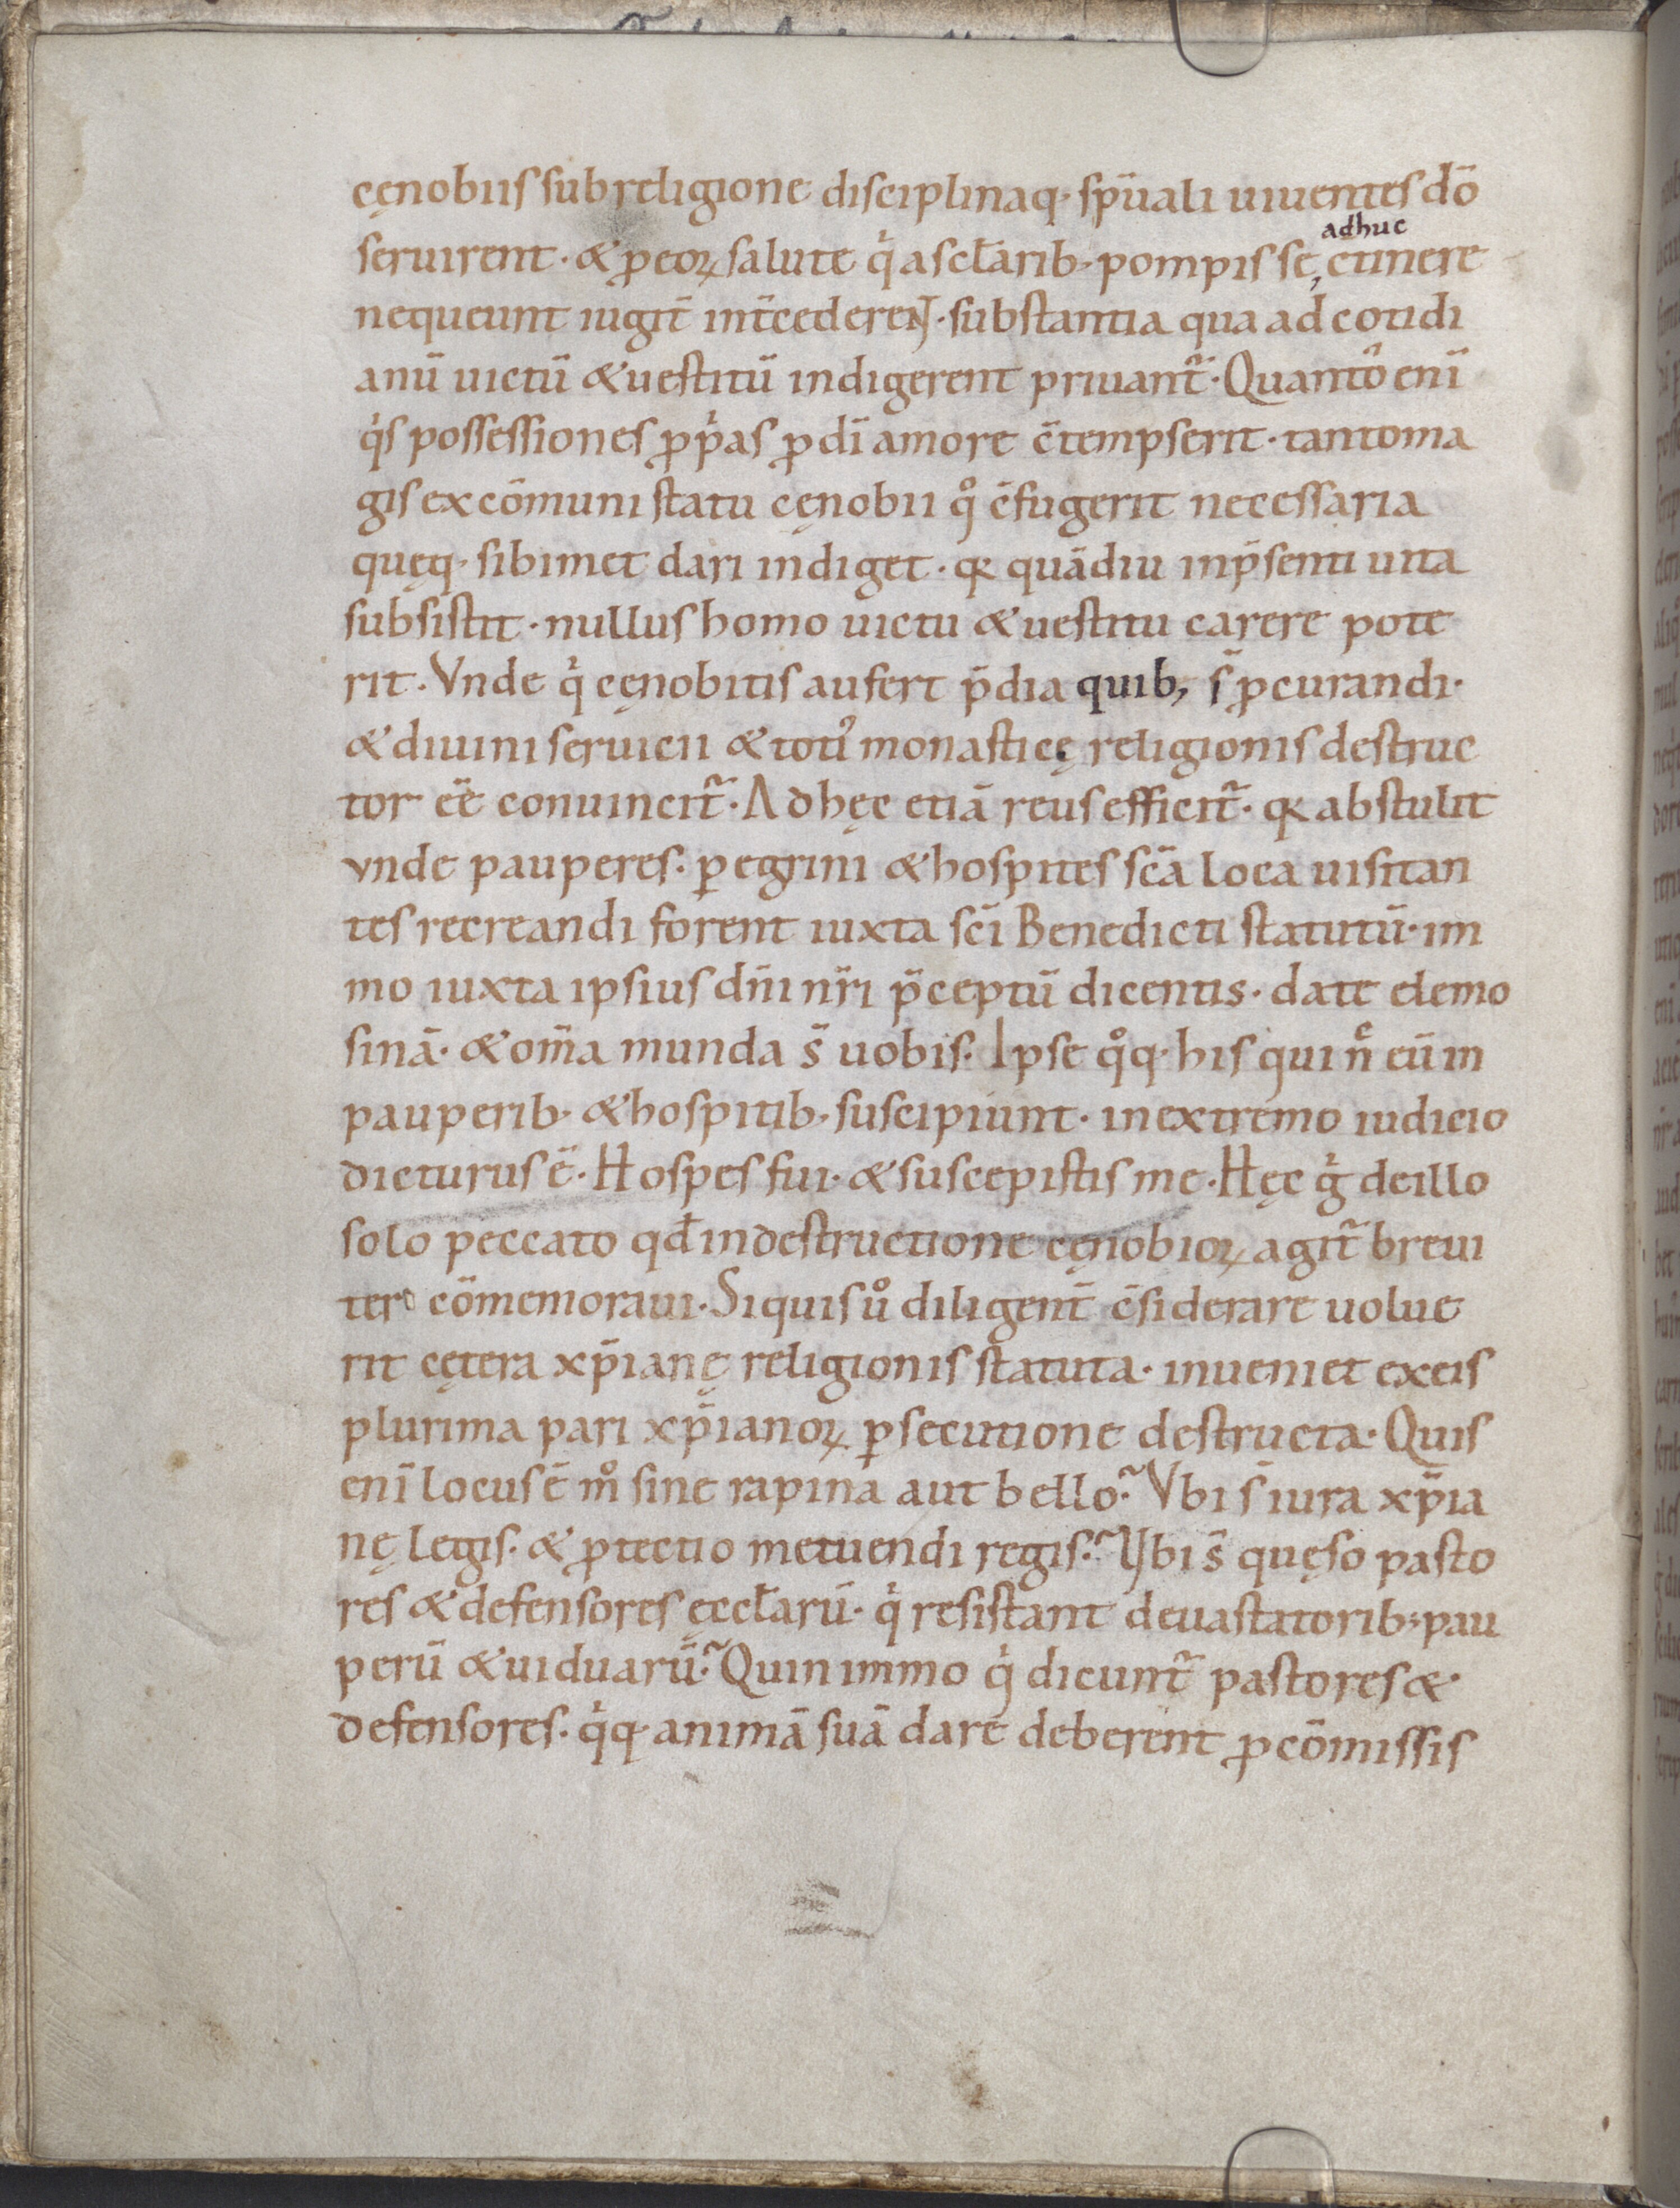 cęnobiis sub religione disciplinaq· sp̄uali uiuentes dō
adhuc
seruirent · & ꝓ eoꝝ salute qͥ a scł̄arib· pompis se, c̄tinere
nequeunt iugit̄ int̄cederenT · substantia qua ad cotidi
anū uictū & uestitū indigerent priuant᷑ · Quanto enī
qͥs possessiones ꝓpͥas ꝓ dī amore c̄tempserit · tanto ma
gis ex cōmuni statu cęnobii qͦ c̄fugerit necessaria
quęq· sibimet dari indiget · qꝛ quādiu in p̄senti uita
subsistit · nullus homo uictu & uestitu carere pote
rit · Vnde qͥ cęnobitis aufert p̄dia quib; s̄ ꝓcurandi·
& diuini seruicii & totiꝰ monasticę religionis destruc
tor ēē conuincit᷑ · Ad hęc etiā reus efficit᷑ · qꝛ abstulit
vnde pauperes · ꝑegrini & hospites sc̄a loca uisitan
tes recreandi forent iuxta sc̄i Benedicti statutū · im
mo iuxta ipsius dn̄i nr̄i p̄ceptū dicentis · date elemo
sinā · & om̄a munda s̄ uobis · Ipse qͦq· his qui n̄ eū in
pauperib· & hospitib· suscipiunt · in extremo iudicio
dicturus ē · Hospes fui · & suscepistis me · Hęc gͥ de illo
solo peccato qđ in destructione cęnobioꝝ agit᷑ breui
ter cōmemoraui · Siquis uͦ diligent̄ c̄siderare uolue
rit cętera xp̄ianę religionis statuta · inueniet ex eis
plurima pari xp̄ianoꝝ ꝑsecutione destructa · Quis
enī locus ē mͦ sine rapina aut bello ? Vbi s̄ iura xp̄ia
nę legis · & ꝓtectio metuendi regis ? Vbi s̄ quęso pasto
res & defensores ęccł̄arū · qͥ resistant deuastatorib; pau
perū & uiduarū ? Quin immo qͥ dicunt᷑ pastores &·
defensores · qͥq· animā suā dare deberent ꝓ cōmissis